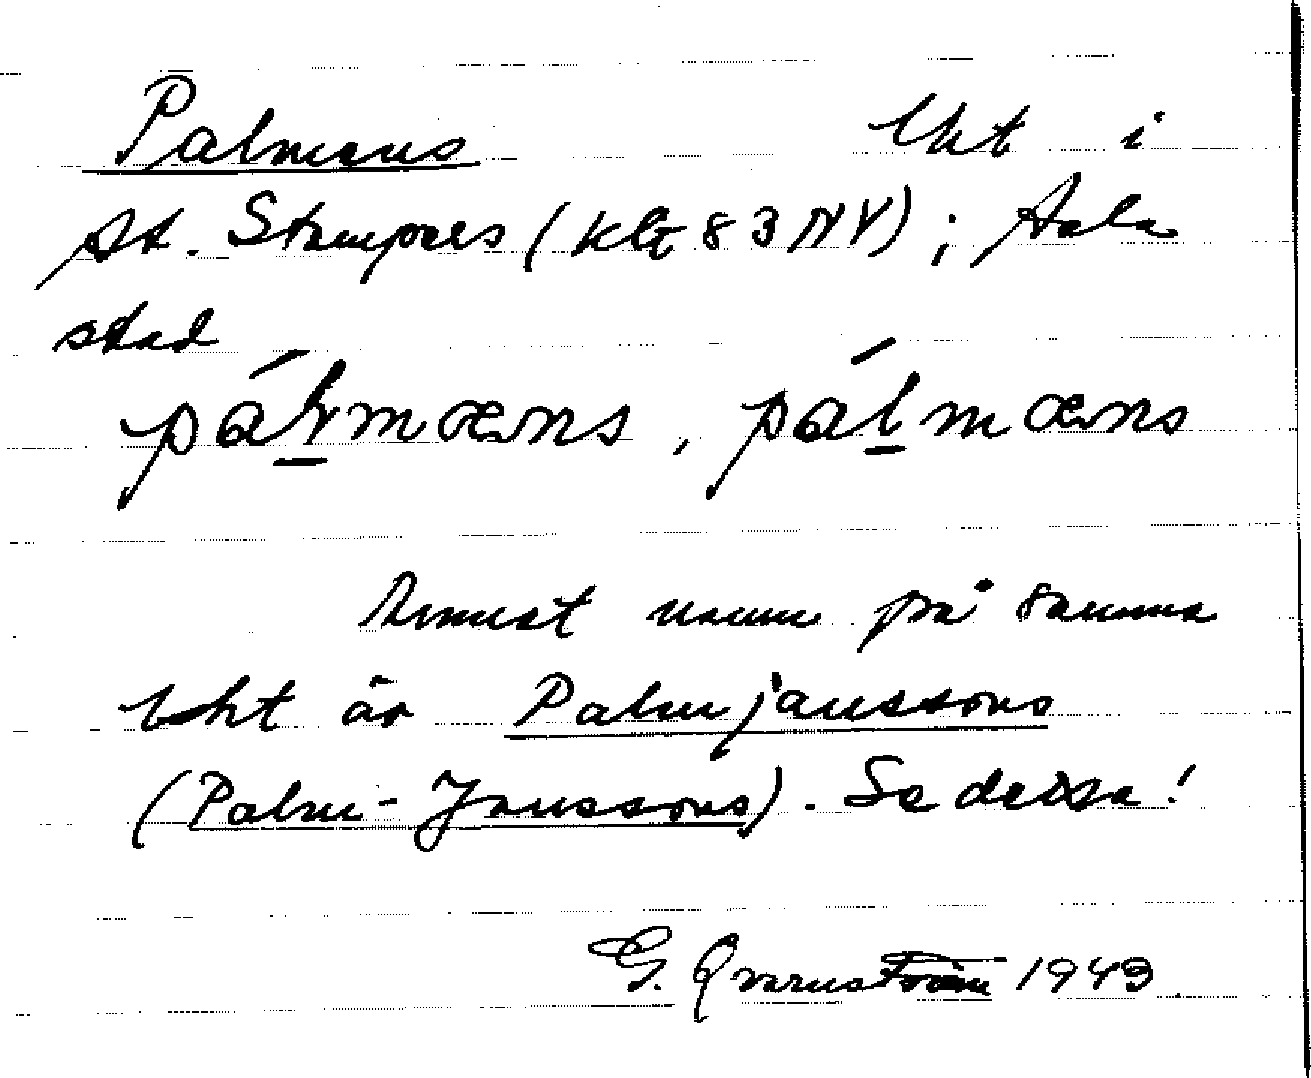 Palmens lht i
st. Stampers (kbl 83 NV); Aala
stad
pálmæns, pálmæns
Annat namn på samma
lht är Palmjanssons
(Palm-Janssons). Se dessa!
G. Qvarnström 1949